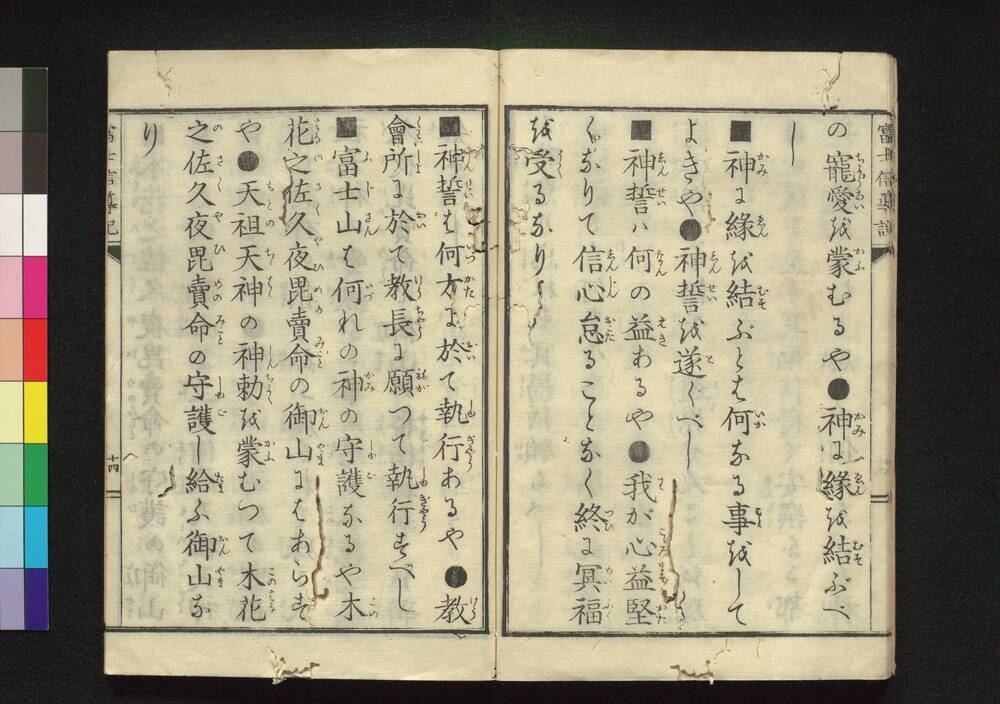 の寵愛を蒙むるや●神に緣を結ぶべ
し
■神に緣を結ぶとは何なる事をして
よきや●神誓を遂くべし
■神誓ハ何の益あるや●我が心益堅
くなりて信心怠ることなく終に冥福
を受るなり
■神誓は何方に於て執行あるや●教
會所に於て教長に願つて執行すべし
■富士山は何れの神の守護なるや木
花之佐久夜毘賣命の御山にはあらず
や●天祖天神の神勅を蒙むつて木花
之佐久夜毘賣命の守護し給ふ御山な
り
十四